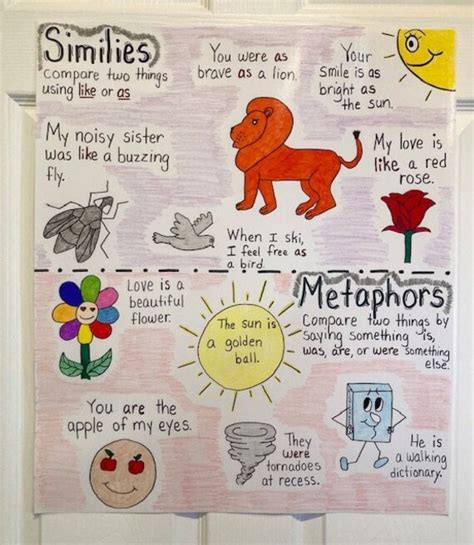 Similies
Compare two things
using like or as
You were as
brave as a lion.
Your
Smile is as
bright as
the sun.
My noisy sister
was like a buzzing
fly.
My love is
like a red
rose.
When I ski,
I feel free as
a bird
Love is a
beautiful
flower.
The sun is
a golden
ball.
Metaphors
Compare two things by
saying something is,
was, are, or were something
else.
You are the
apple of my eyes.
They
were
tornadoes
at recess.
He is
a walking
dictionary.